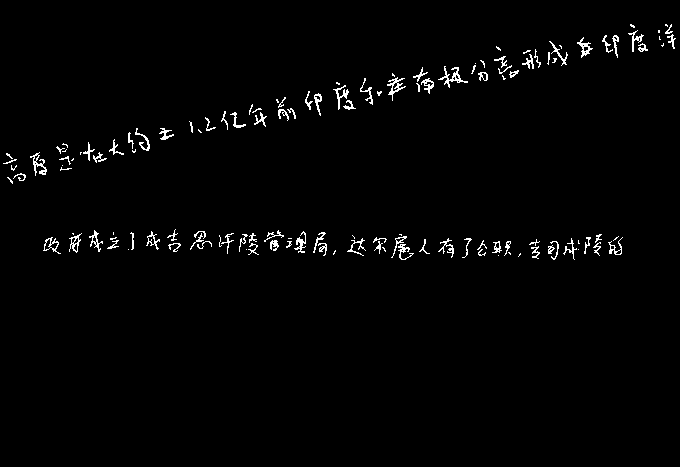 高原是在大约士1.2亿年前印度和在南极分离形成在印度洋
政府成立了成吉思汗陵管理局,达尔扈人有了公职,专司成陵的